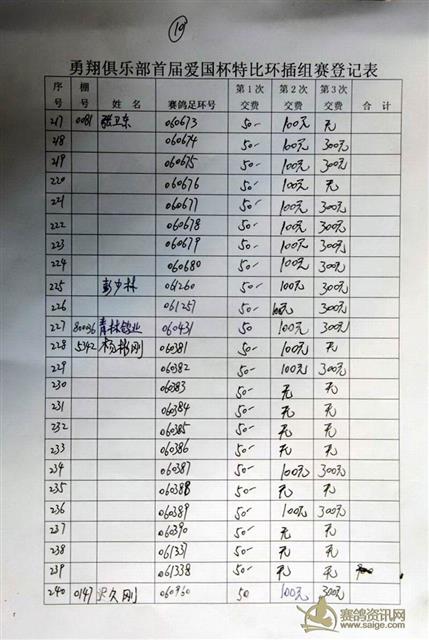 19
勇翔俱乐部首届爱国杯特比环插组赛登记表
序号 棚号 姓名 赛鸽足环号 第1次交费 第2次交费 第3次交费 合计
217 0081 张卫东 060673 50- 100元 无
218 060674 50- 100元 300元
219 060675 50- 100元 300元
220 060676 50- 100元 无
221 060677 50- 100元 300元
222 060678 50- 100元 300元
223 060679 50- 100元 300元
224 060680 50- 100元 300元
225 彭少林 061260 50- 100元 300元
226 061257 50- 100元 300元
227 80036 青林牧业 060431 50 100元 300元
228 5342 杨彬刚 060381 50- 100元 无
229 060382 50- 100元 300元
230 060383 50- 无 无
231 060384 50- 无 无
232 060385 50- 无 无
233 060386 50- 无 无
234 060387 50- 100元 300元
235 060388 50- 无 无
236 060389 50- 100元 300元
237 060390 50- 无 无
238 061337 50- 无 无
239 061338 50- 无 无
240 0147 久刚 060960 50 100元 300元
赛鸽资讯网
www.saige.com